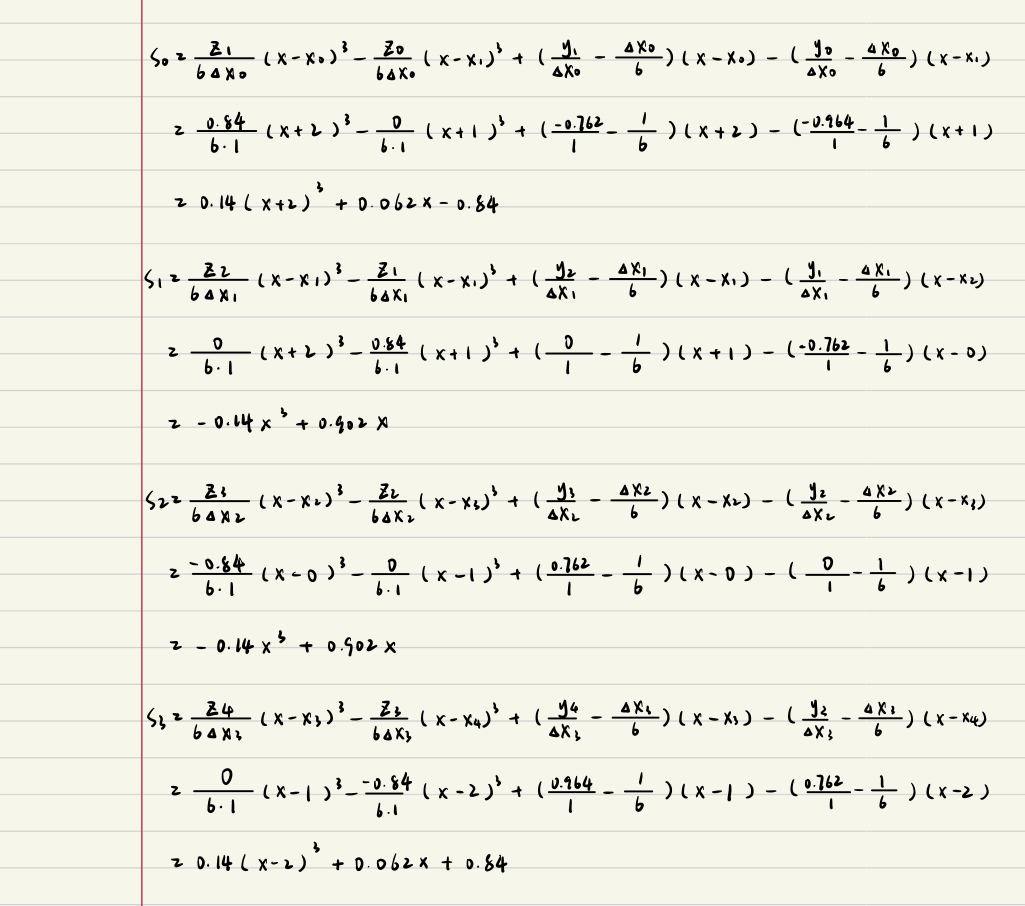 S₀ = Z₁/(6ΔX₀) (x-x₀)³ - Z₀/(6ΔX₀) (x-x₁)³ + (y₁/ΔX₀ - ΔX₀/6)(x-x₀) - (y₀/ΔX₀ - ΔX₀/6)(x-x₁)
= 0.84/(6·1) (x+2)³ - 0/(6·1) (x+1)³ + (-0.762/1 - 1/6)(x+2) - (-0.964/1 - 1/6)(x+1)
= 0.14(x+2)³ + 0.062x - 0.84
S₁ = Z₂/(6ΔX₁) (x-x₁)³ - Z₁/(6ΔX₁) (x-x₁)³ + (y₂/ΔX₁ - ΔX₁/6)(x-x₁) - (y₁/ΔX₁ - ΔX₁/6)(x-x₂)
= 0/(6·1) (x+2)³ - 0.84/(6·1) (x+1)³ + (0/1 - 1/6)(x+1) - (-0.762/1 - 1/6)(x-0)
= -0.14x³ + 0.902x
S₂ = Z₃/(6ΔX₂) (x-x₂)³ - Z₂/(6ΔX₂) (x-x₃)³ + (y₃/ΔX₂ - ΔX₂/6)(x-x₂) - (y₂/ΔX₂ - ΔX₂/6)(x-x₃)
= -0.84/(6·1) (x-0)³ - 0/(6·1) (x-1)³ + (0.762/1 - 1/6)(x-0) - (0/1 - 1/6)(x-1)
= -0.14x³ + 0.902x
S₃ = Z₄/(6ΔX₃) (x-x₃)³ - Z₃/(6ΔX₃) (x-x₄)³ + (y₄/ΔX₃ - ΔX₃/6)(x-x₃) - (y₂/ΔX₃ - ΔX₃/6)(x-x₄)
= 0/(6·1) (x-1)³ - -0.84/(6·1) (x-2)³ + (0.964/1 - 1/6)(x-1) - (0.762/1 - 1/6)(x-2)
= 0.14(x-2)³ + 0.062x + 0.84